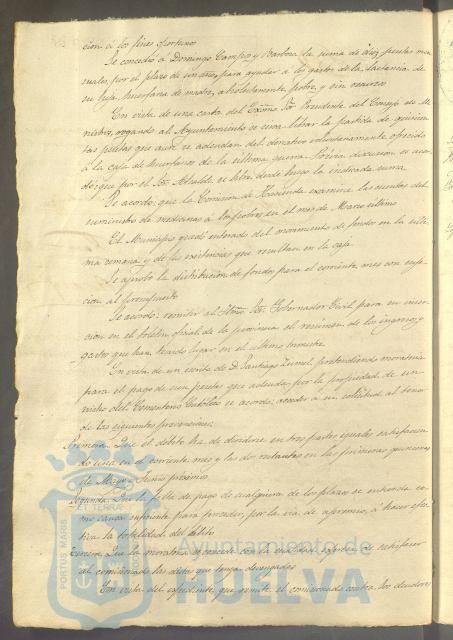 cion á los fines oportunos
Se concedió á Domingo Campos y Barbosa la suma de diez pesetas men
suales, por el plazo de un año, para ayudar á los gastos de la lactancia de
su hija, huerfana de madre, absolutamente pobre y sin recursos
En vista de una carta del Excmo Sor Presidente del Consejo de Mi
nistros, rogando al Ayuntamiento se sirva librar la partida de quinien
tas pesetas que aun se adeudan del donativo voluntariamente ofrecido
á la caja de huerfanos de la ultima guerra. Prévia discusion se acor
dó: que por el Sor Alcalde se libre desde luego la indicada suma
Se acordo: que la Comision de Hacienda examine las cuentas del
suministro de medicinas á los pobres en el mes de Marzo ultimo
El Municipio quedó enterado del movimiento de fondos en la ulti
ma semana y de las existencias que resultan en la caja
Se aprobó la distribucion de fondos para el corriente mes con suge
cion al presupuesto
Se acordo: remitir al Iltmo Sor Gobernador Civil para su inser
cion en el boletin oficial de la provincia el resúmen de los ingresos y
gastos que han tenido lugar en el ultimo trimestre
En vista de un escrito de D. Santiago pretendiendo moratoria
para el pago de cien pesetas que adeuda por la propiedad de un
nicho del Cementerio Católico se acordo: acceder á su solicitud al tenor
de las siguientes prevenciones:
Primera. Que el débito ha de dividirse en tres partes iguales satisfacien
do una en el corriente mes y las dos restantes en las primeras quincenas
de Mayo y Junio próximos
Segunda. Que la falta de pago de cualquiera de los plazos se entienda co
mo causa suficiente para proceder, por la via de apremio, á hacer efec
tiva la totalidad del débito
Tercera. Que la moratoria se concede con la cualidad expresa de satisfacer
al comisionado las dietas que tenga devengadas
En vista del expediente que remite el comisionado contra los deudores
PORTUS MARIS
ET TERRAE
Ayuntamiento de
HUELVA